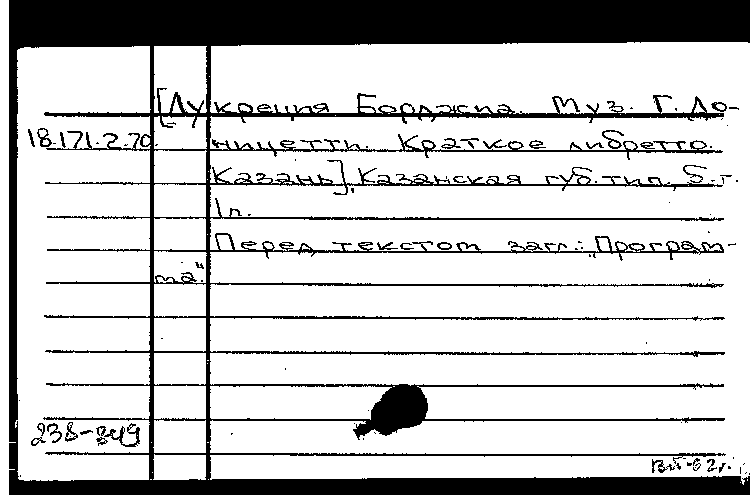 [Лукреция Борджиа. Муз. Г. До-
18.171.2.70. ницетти. Краткое либретто.
Казань]. Казанская губ. тип., Б. г.
1 л.
Перед текстом загл.: „Програм-
ма“
238-349